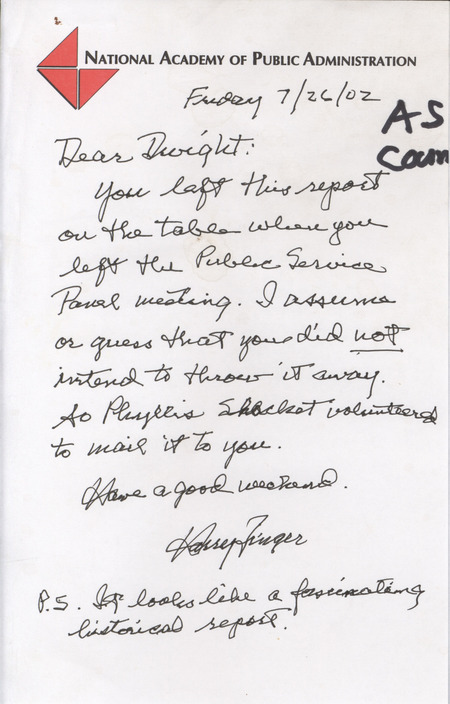 NATIONAL ACADEMY OF PUBLIC ADMINISTRATION
Friday 7/26/02
AS
Com
Dear Dwight:
You left this report
on the table when you
left the Public Service
Panel meeting. I assume
or guess that you did not
intend to throw it away.
So Phyllis volunteered
to mail it to you.
Have a good weekend.
Harry Finger
P.S. It looks like a fascinating
historical report.